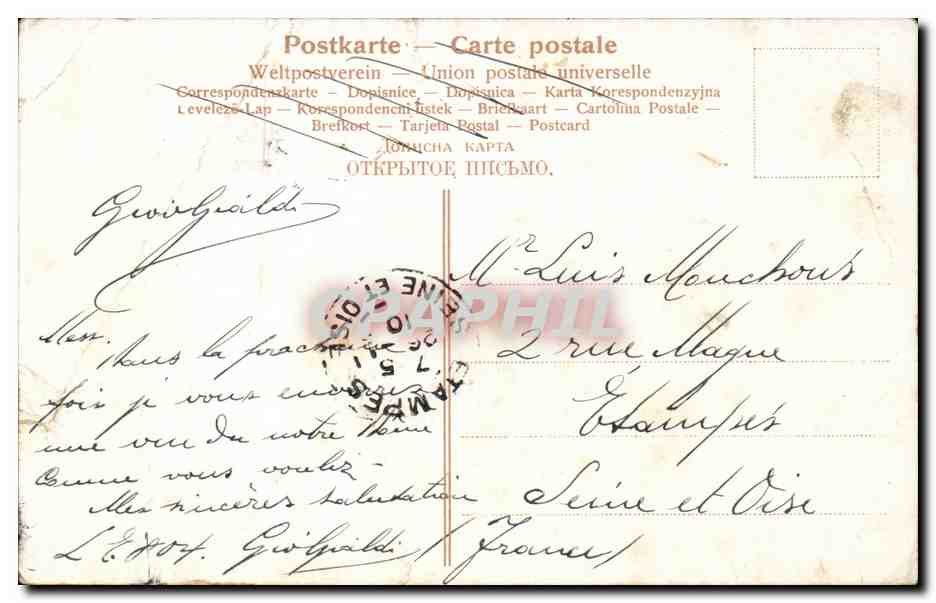 Postkarte — Carte postale
Weltpostverein — Union postale universelle
Correspondenzkarte — Dopisnice — Dopisnica — Karta Korespondenzyjna
Levelező-Lap — Korespondenční lístek — Briefkaart — Cartolina Postale —
Brefkort — Tarjeta Postal — Postcard
Дописна карта
ОТКРЫТОЕ ПИСЬМО.
Mess.
Dans la prochaine
fois je vous enverrez
une vue du notre
comme vous voulez –
Mes sincères salutation
ETAMPES
SEINE ET OISE
CPAPHIL
Mr Luis
2 rue Magne
Étampes
Seine et Oise
(France)